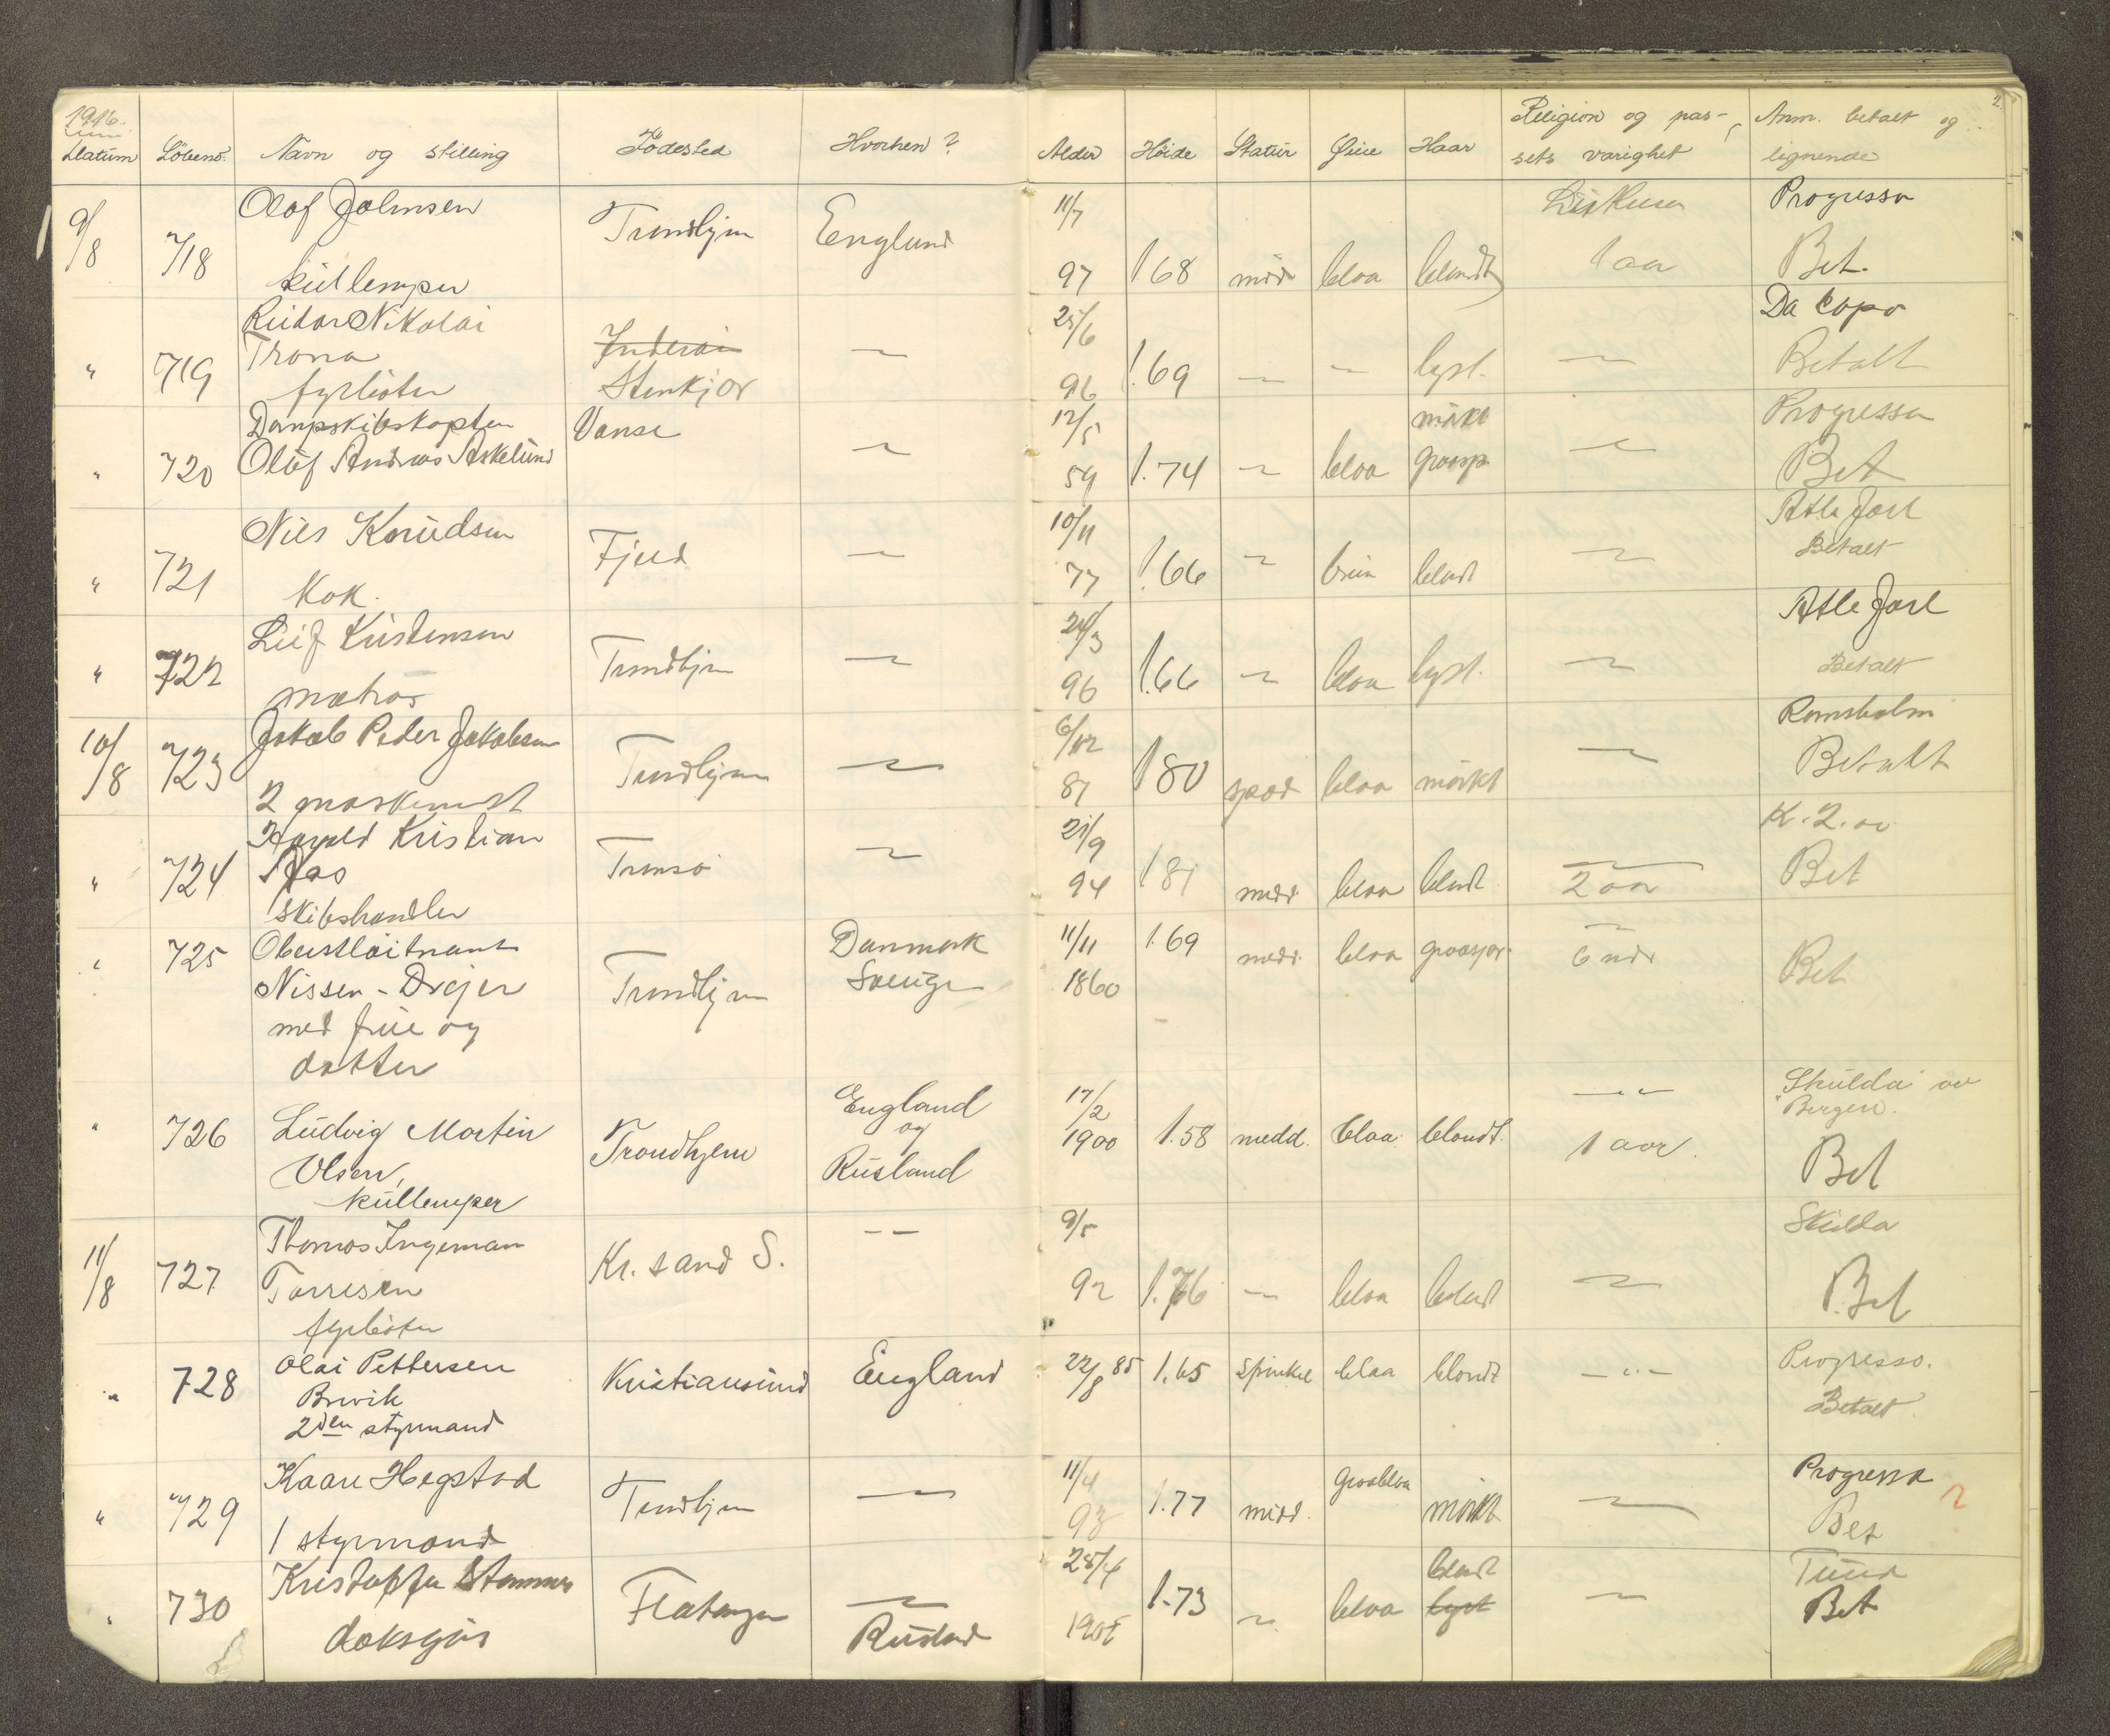 1916.
Datum Löbeno. Navn og stilling Födested Hvorhen? Alder Höide Statur Öine Haar Religion og pas- Anm. betalt og
sets varighet lignende
2
9/8 718 Olaf Johnsen Trondhjem England 11/7 1.68 midd blaa blondt Progresso
kullemper 97 1 aar Bet.
" 719 Reidar Nikolai Inderöi — 25/6 1.69 — — lyst. — Da Capo
Trona Stenkjær 96 Betalt
fyrböter
" 720 Dampskibskaptein Vanse — 12/5 1.74 — blaa mörkt — Progresso
Oluf Andreas Askelund 59 graaspr. Bet
" 721 Nils Knudsen Fjeld — 10/11 1.66 — brun blondt — Atle Jarl
Kok. 77 Betalt
" 722 Leif Kristensen Trondhjem — 24/3 1.66 — blaa lyst. — Atle Jarl
matros 96 Betalt
10/8 723 Jakob Peder Jakobsen Trondhjem — 6/12 1.80 spæd blaa mörkt — Romsholm
2 maskinist 81 Betalt
" 724 Harald Kristian Tromsö — 21/9 1.81 midd blaa blondt — K. 2.
Aas 94 2 aar Bet
Skibshandler
" 725 Oberstlöitnant Trondhjem Danmark 11/11 1.69 midd. blaa graaspr. — Bet
Nissen-Drejer Sverige 1860 6 mdr
med frue og
datter
" 726 Ludvig Martin Trondhjem England 17/2 1.58 medd. blaa blondt. — " — Skulda av
Olsen, og 1900 1 aar. Bergen.
kullemper Rusland Bet
11/8 727 Thomas Ingeman Kr. sand S. — — 9/5 1.76 — blaa blondt — Skulda
Torresen 92 Bet
fyrböter
" 728 Olai Pettersen Kristiansund England 22/8 85 1.65 spinkel blaa blondt — " — Progresso.
Brevik Betalt
2den styrmand
" 729 Kaare Hegstad Trondhjem — 11/4 1.77 midd. graablaa mörkt — Progresso
1 styrmand 93 Bet
" 730 Kristoffer Flatanger — 25/4 1.73 — blaa blondt — Bet
doksgut Rusland lyst